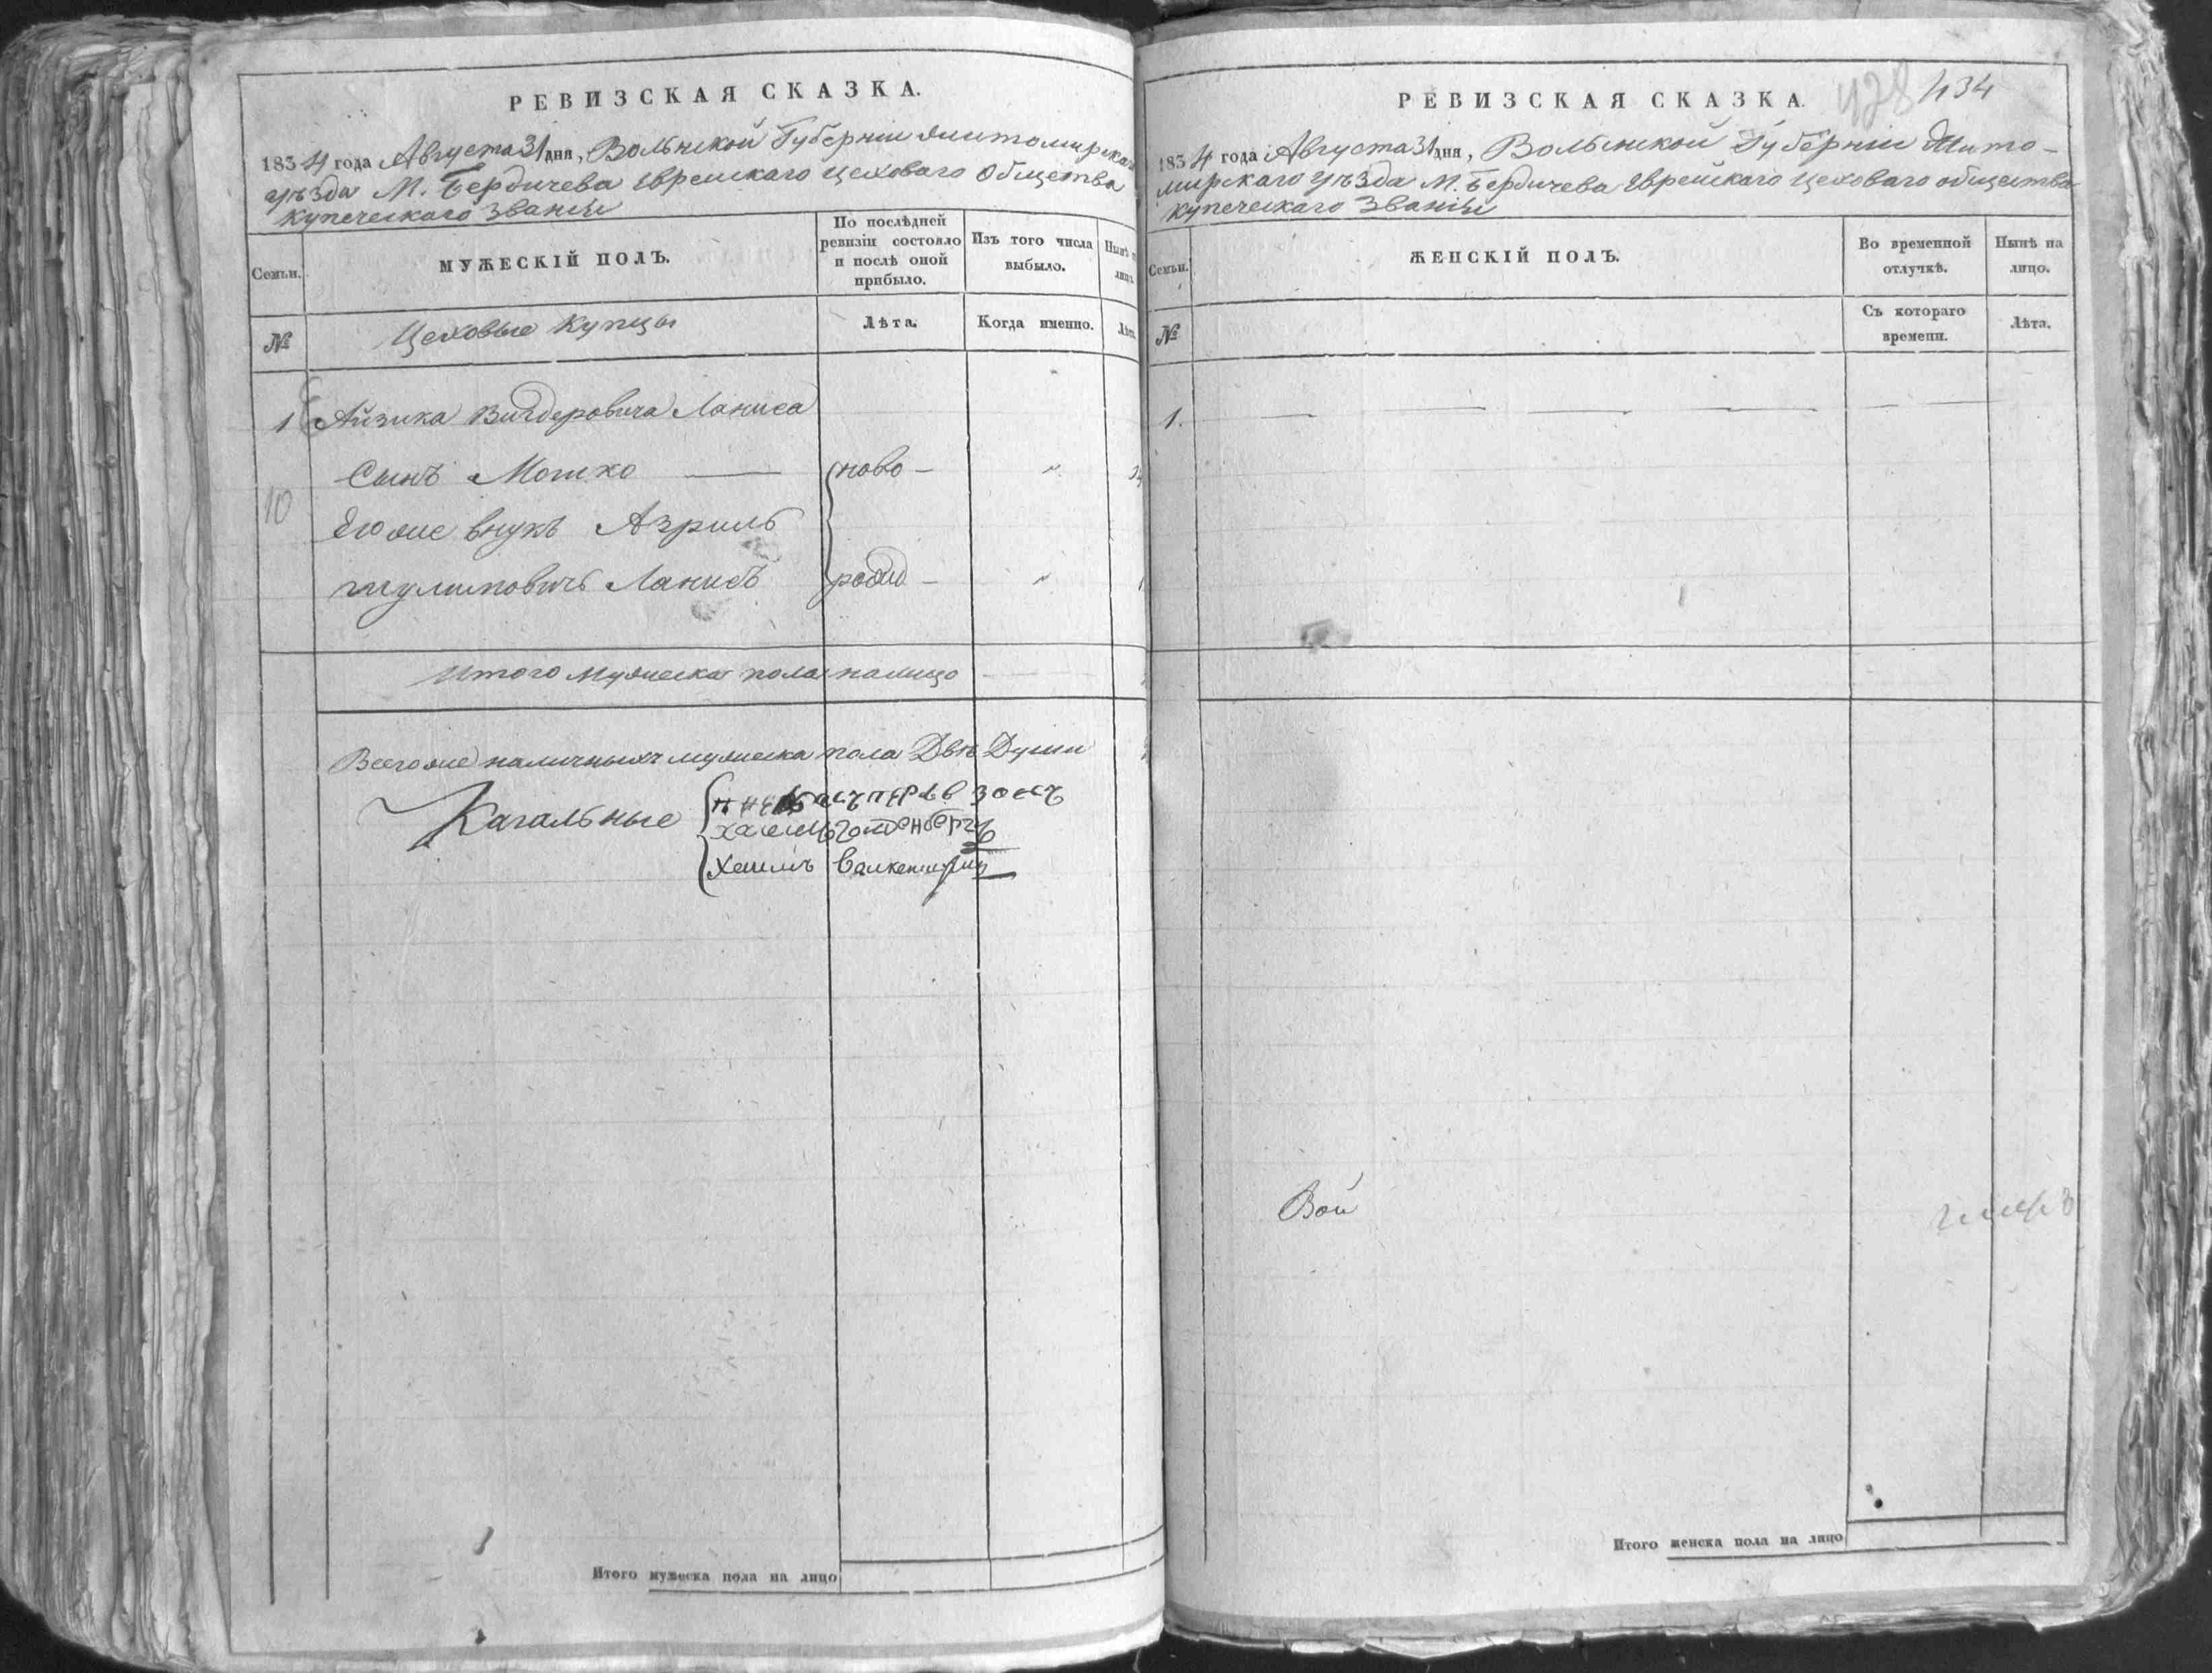 РЕВИЗСКАЯ СКАЗКА.
1834 года Августа 31 дня, Волынской Губернии Житомирскаго
уѣзда М. Бердичева Еврейскаго цеховаго Общества
купеческаго Званія
Семьи.
МУЖЕСКІЙ ПОЛЪ.
По послѣдней ревизіи состояло и послѣ оной прибыло.
Изъ того числа выбыло.
Нынѣ
№
Цеховые Купцы
Лѣта.
Когда именно.
1 Айзика Вигдеровича Ланиса
Сынъ Мошко — ново —
10
Его же внукъ Азриль
Шулимовичъ Ланисъ рожд —
Итого мужеска пола налицо
Всего же наличныхъ мужеска пола Двѣ Души
Кагальные
Хаимъ
Хаимъ
Итого мужеска пола на лицо
РЕВИЗСКАЯ СКАЗКА.
428 434
1834 года Августа 31 дня, Волынской Губерніи Жито-
мирскаго уѣзда М. Бердичева Еврейскаго цеховаго общества
купеческаго Званія
Семьи.
ЖЕНСКІЙ ПОЛЪ.
Во временной отлучкѣ.
Нынѣ на лицо.
№
Съ котораго времени.
Лѣта.
1.
Вой
Итого женска пола на лицо